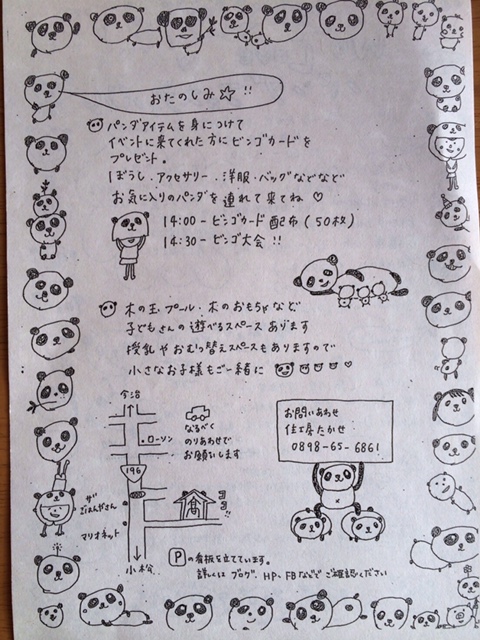 おたのしみ☆!!
パンダアイテムを身につけて
イベントに来てくれた方にビンゴカードを
プレゼント。
ぼうし・アクセサリー・洋服・バッグなどなど
お気に入りのパンダを連れて来てね♡
14:00-ビンゴカード配布(50枚)
14:30-ビンゴ大会!!
木の玉プール・木のおもちゃなど
子どもさんの遊べるスペースあります
授乳やおむつ替えスペースもありますので
小さなお子様もご一緒に
今治
ローソン
なるべく
のりあわせで
お願いします
196
ココ
ザ・
ごはんやさん
マリオネット
小松
お問いあわせ
住工房たかせ
0898-65-6861
Pの看板を立てています。
詳しくはブログ、HP、FBなどでご確認ください